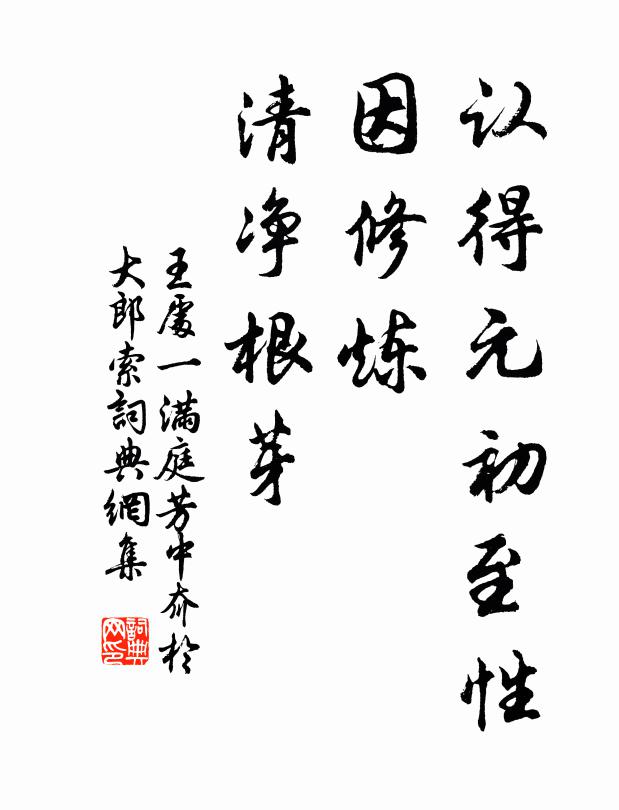 认得元初至性
因修炼
清净根芽
王處一满庭芳中夯於
大郎索詞典網集
詞典
网印